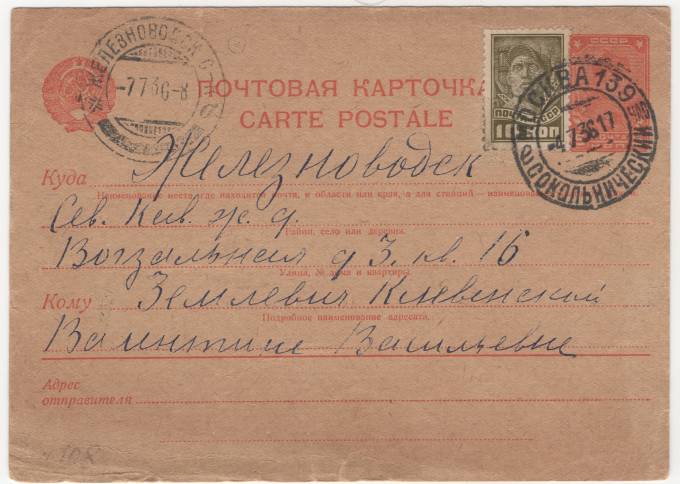 ЖЕЛЕЗНОВОДСК
-7736-8
ПОЧТОВАЯ КАРТОЧКА
CARTE POSTALE
СССР
ПОЧТА СССР
10 КОП
МОСКВА 139
-4.7.36 17
СОКОЛЬНИЧЕСКИЙ
Куда Железноводск
Наименование места, где находится почта, и области или края, а для станций – наименование
Сев. Кав. ж. д.
Район, село или деревня.
Вогзальная д 3. кв. 16
Улица, № дома и квартиры.
Кому Землевич Киевенской
Подробное наименование адресата.
Валентине Васильевне
Адрес
отправителя
108